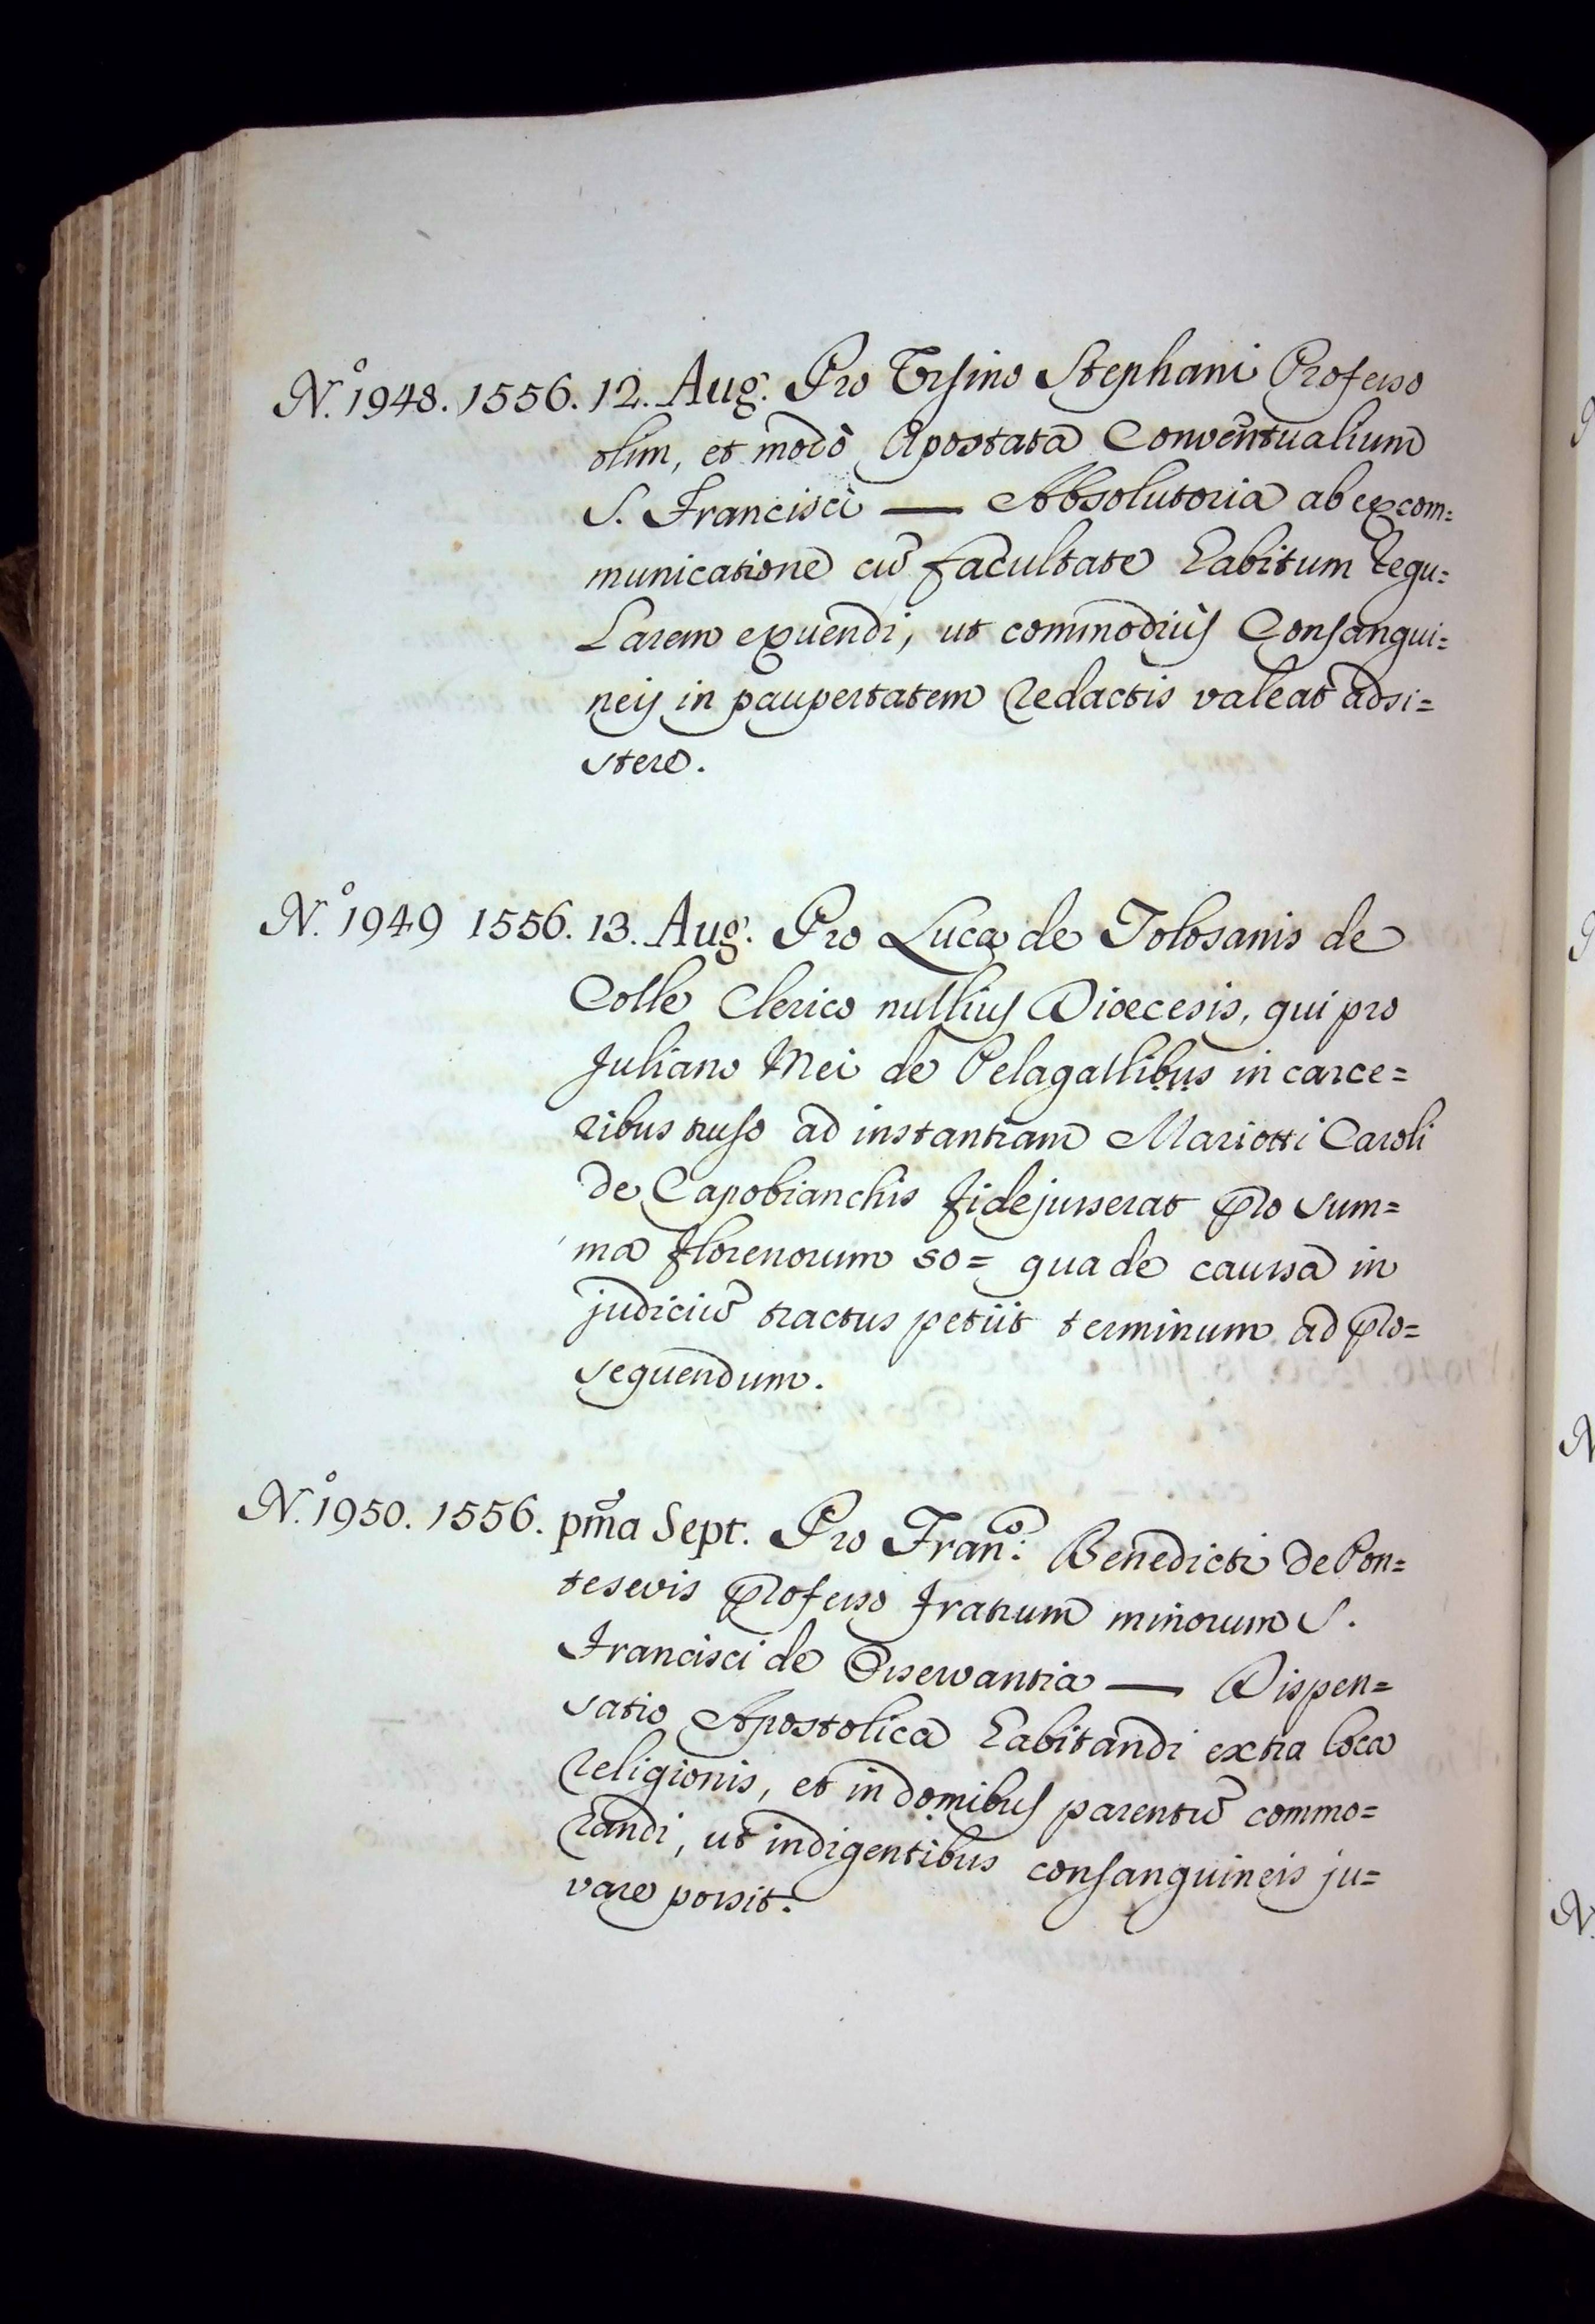 N.º 1948. 1556. 12. Aug. Pro Ursino Stephani Professo
olim, et modò Apostata Conventualium
S. Francisci — Absolutoria ab excom=
municatione cū facultate habitum regu=
larem exuendi, ut commodiùs Consangui=
neis in paupertatem redactis valeat adsi=
stere.
N.º 1949 1556. 13. Aug. Pro Luca de Tolosanis de
Colle Clerico nullius Dioecesis, qui pro
Juliano Mei de Pelagallibus in carce=
ribus truso ad instantiam Mariotti Caroli
de Capobianchis fidejusserat pro sum=
ma florenorum 50= qua de caussa in
judiciū tractus petiit terminum ad pro=
sequendum.
N.º 1950. 1556. pm̄a Sept. Pro Fran.º Benedicti de Pon=
tesevis professo fratrum minorum S.
Francisci de Observantia — Dispen=
satio Apostolica habitandi extra loca
religionis, et in domibus parentū commo=
randi, ut indigentibus consanguineis ju=
vare possit.